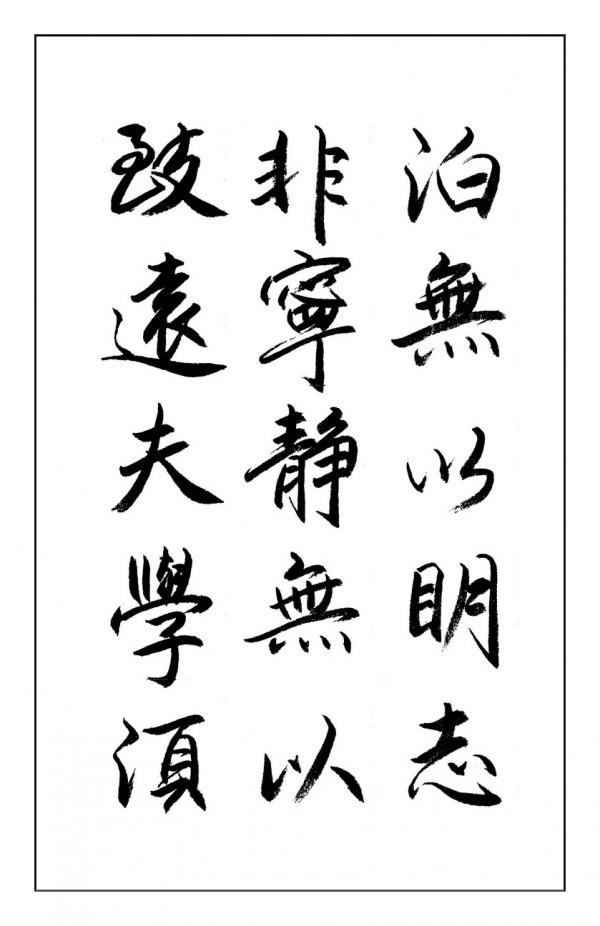 泊無以明志
非寧靜無以
致遠夫學須